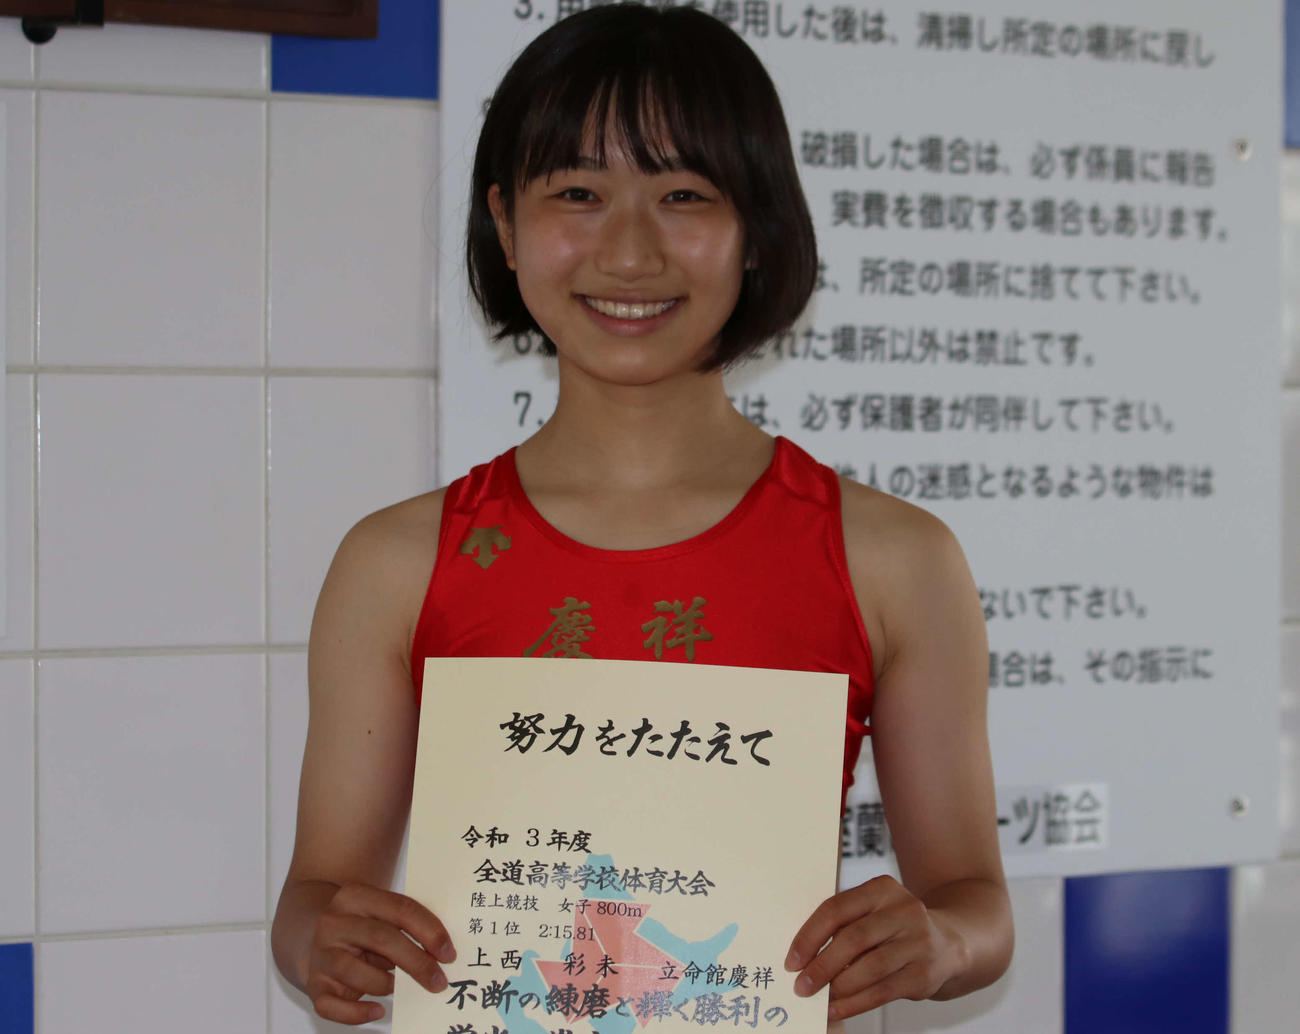 3.
使用した後は、清掃し所定の場所に戻し
破損した場合は、必ず係員に報告
実費を徴収する場合もあります。
、所定の場所に捨てて下さい。
された場所以外は禁止です。
7.
は、必ず保護者が同伴して下さい。
他人の迷惑となるような物件は
ないで下さい。
場合は、その指示に
室蘭
ーツ協会
慶祥
努力をたたえて
令和 3年度
全道高等学校体育大会
陸上競技 女子 800m
第1位 2:15.81
上西 彩未 立命館慶祥
不断の練磨と輝く勝利の